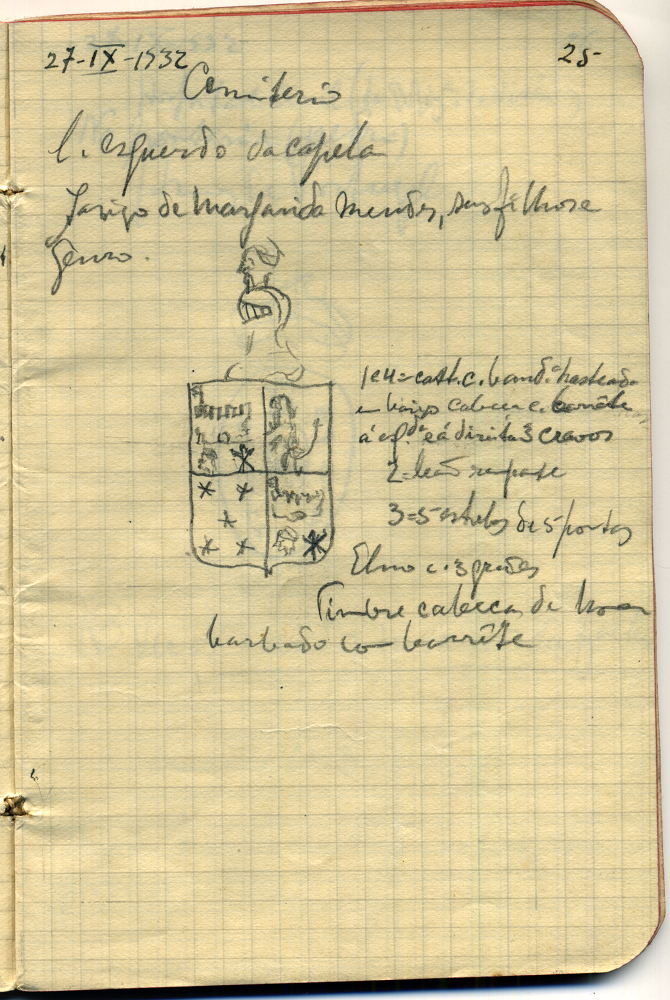 27-IX-1932
25-
Cemiterio
l. esquerdo da capela
Jazigo de Margarida Mendes, seus filhos e
Genro.
1 e 4 = cast. c. band.ª hasteada
em baixo cabeça c. barrête
á esq.da e á direita 3 cravos
2 = leão rapante
3 = 5 estrelas de 5 pontas
Elmo c. 3 grades
Timbre cabeça de homem
barbado com barrête